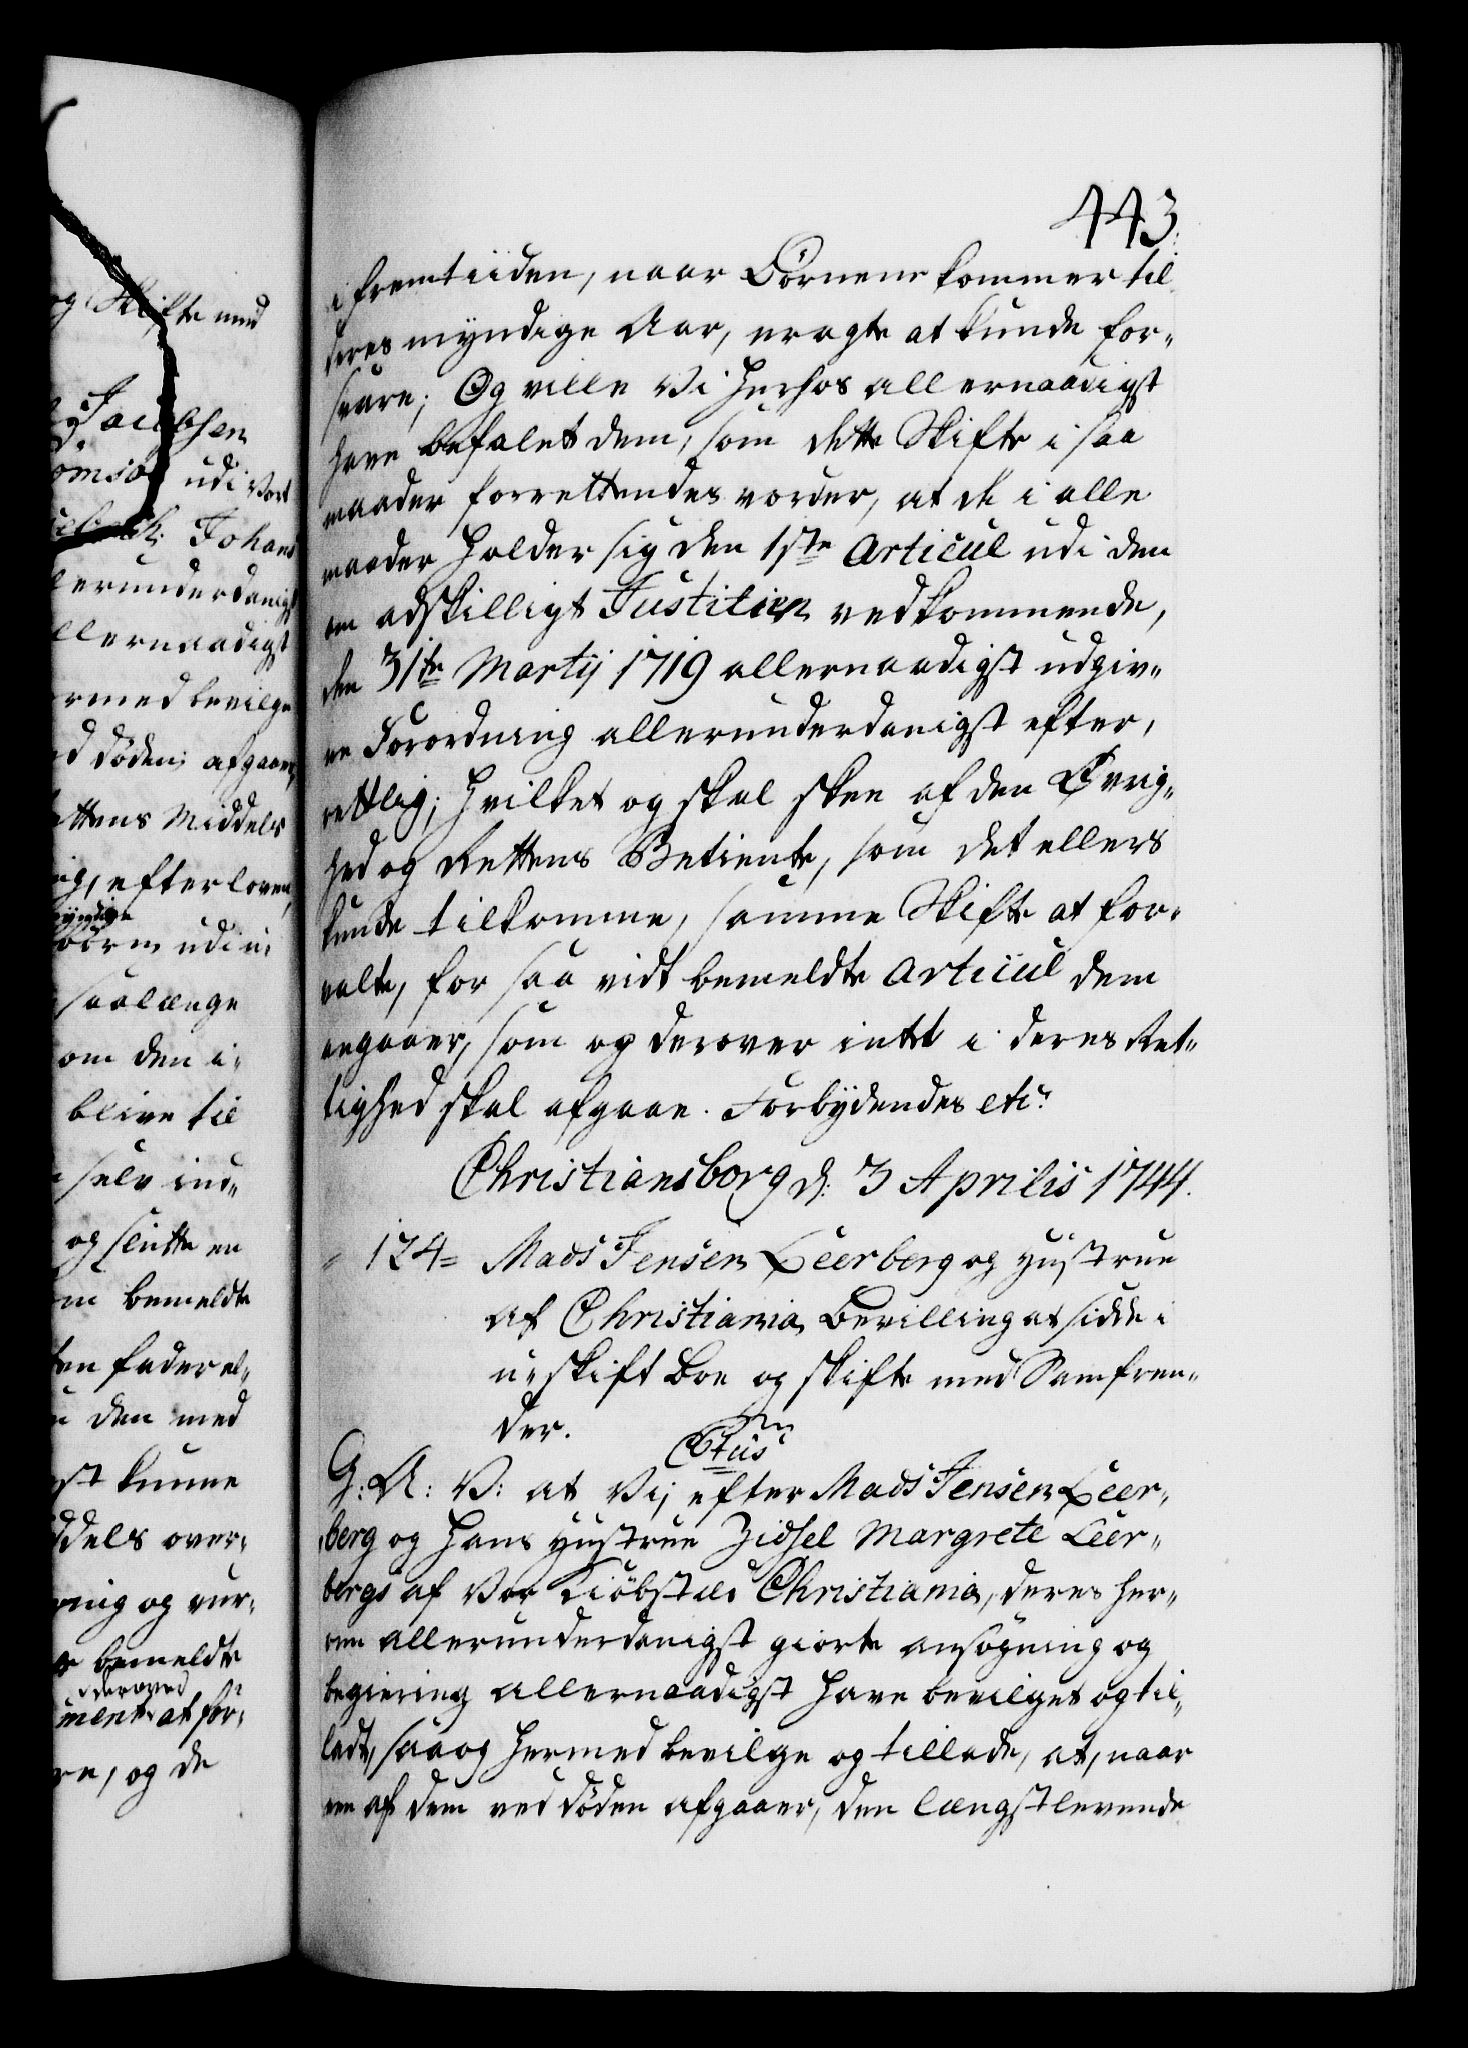 443.
i fremtiiden, naar Börnene kommer til
deres myndige Aar, eragte at kunde for-
svare; Og ville Vi herhos allernaadigst
have befalet dem, som dette Skifte i saa
maader forrettendes vorder, at de i alle
maader holder sig den 1ste Articul udi den
om adskilligt Justitien vedkommende,
den 31te Martij 1719 allernaadigst udgiv-
ne Forordning allerunderdanigst efter,
rettlig; hvilket og skal skee af den Øvrig-
hed og Rettens Betiente, som det ellers
kunde tilkomme, samme Skifte at for-
valte, for saa vidt bemeldte Articul dem
angaaer, som og derover intet i deres Ret-
tighed skal afgaae. Forbydendes etc.
Christiansborg d: 3 Aprilis 1744.
124= Mads Jensen Leerberg og Hustrue
af Christiania Bevilling at sidde i
u-skift Boe og skifte med Samfren-
der.
G: A: V: at Vij efter Mads Jensen Leer-
berg og hans Hustrue Zidsel Margrete Leer-
bergs af Vor Kiöbsted Christiania, deres her-
om allerunderdanigst giorte ansögning og
begiering allernaadigst have bevilget og til-
ladt, saa og hermed bevilge og tillade, at, naar
een af dem ved döden afgaaer, den længstlevende
og Skifte med
Jacobsen
udi Vort
Johans
llerunderdanigst
llernaadigst
rmed bevilge
d döden afgaaer,
ttens Middels
ig, efterloven,
myndige
börn udi u-
saalænge
om den i-
blive til
selv ind-
og slutte en
m bemeldte
en fader el-
den med
st kunne
ddels over-
ning og vur-
bemeldte
derved
ment at for-
re, og de